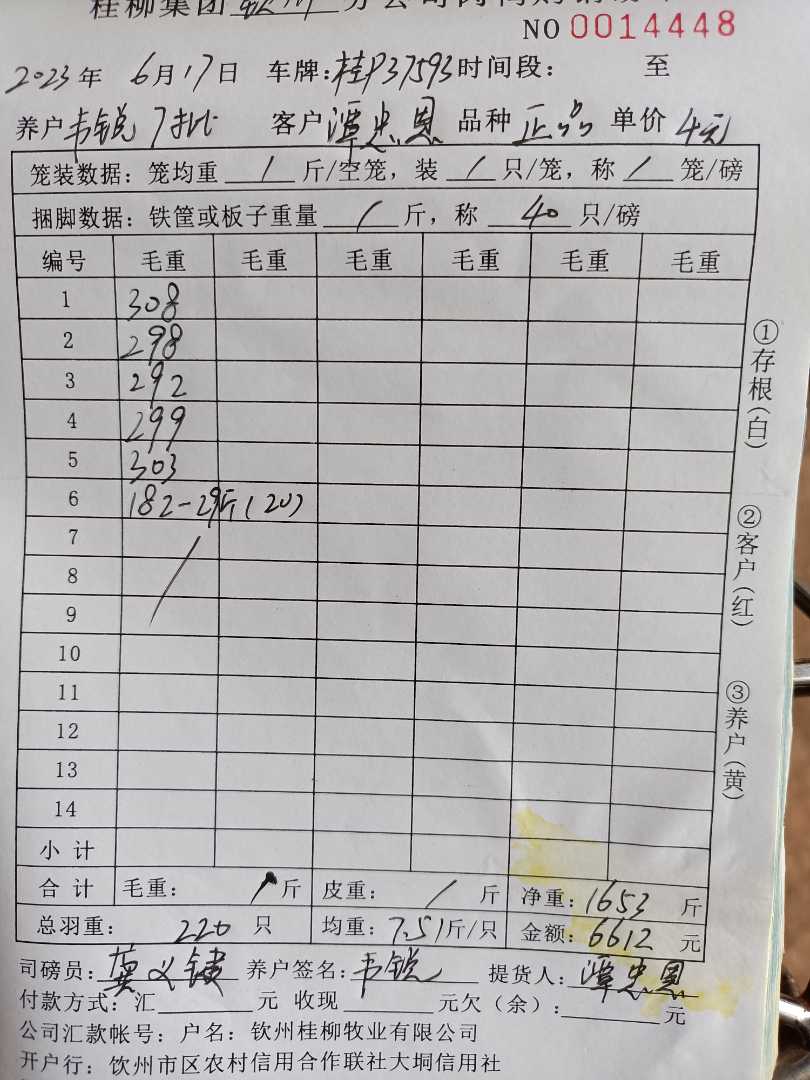 桂柳集团钦州分公司肉
NO 0014448
2023年 6月17日 车牌:桂P37593时间段: 至
养户韦锐7批 客户潭忠恩 品种正品 单价4元
笼装数据: 笼均重 / 斤/空笼, 装 / 只/笼, 称 / 笼/磅
捆脚数据: 铁筐或板子重量 / 斤, 称 40 只/磅
编号 毛重 毛重 毛重 毛重 毛重 毛重
1 308
2 298
3 292
4 299
5 303
6 182-29斤(20)
7
8
9
10
11
12
13
14
小计
合计 毛重: / 斤 皮重: / 斤 净重:1653 斤
总羽重: 220 只 均重:7.51斤/只 金额:6612 元
司磅员:莫义键 养户签名:韦锐 提货人:潭忠恩
付款方式: 汇 元 收现 元欠(余): 元
公司汇款帐号: 户名: 钦州桂柳牧业有限公司
开户行: 饮州市区农村信用合作联社大垌信用社
①存根(白)
②客户(红)
③养户(黄)